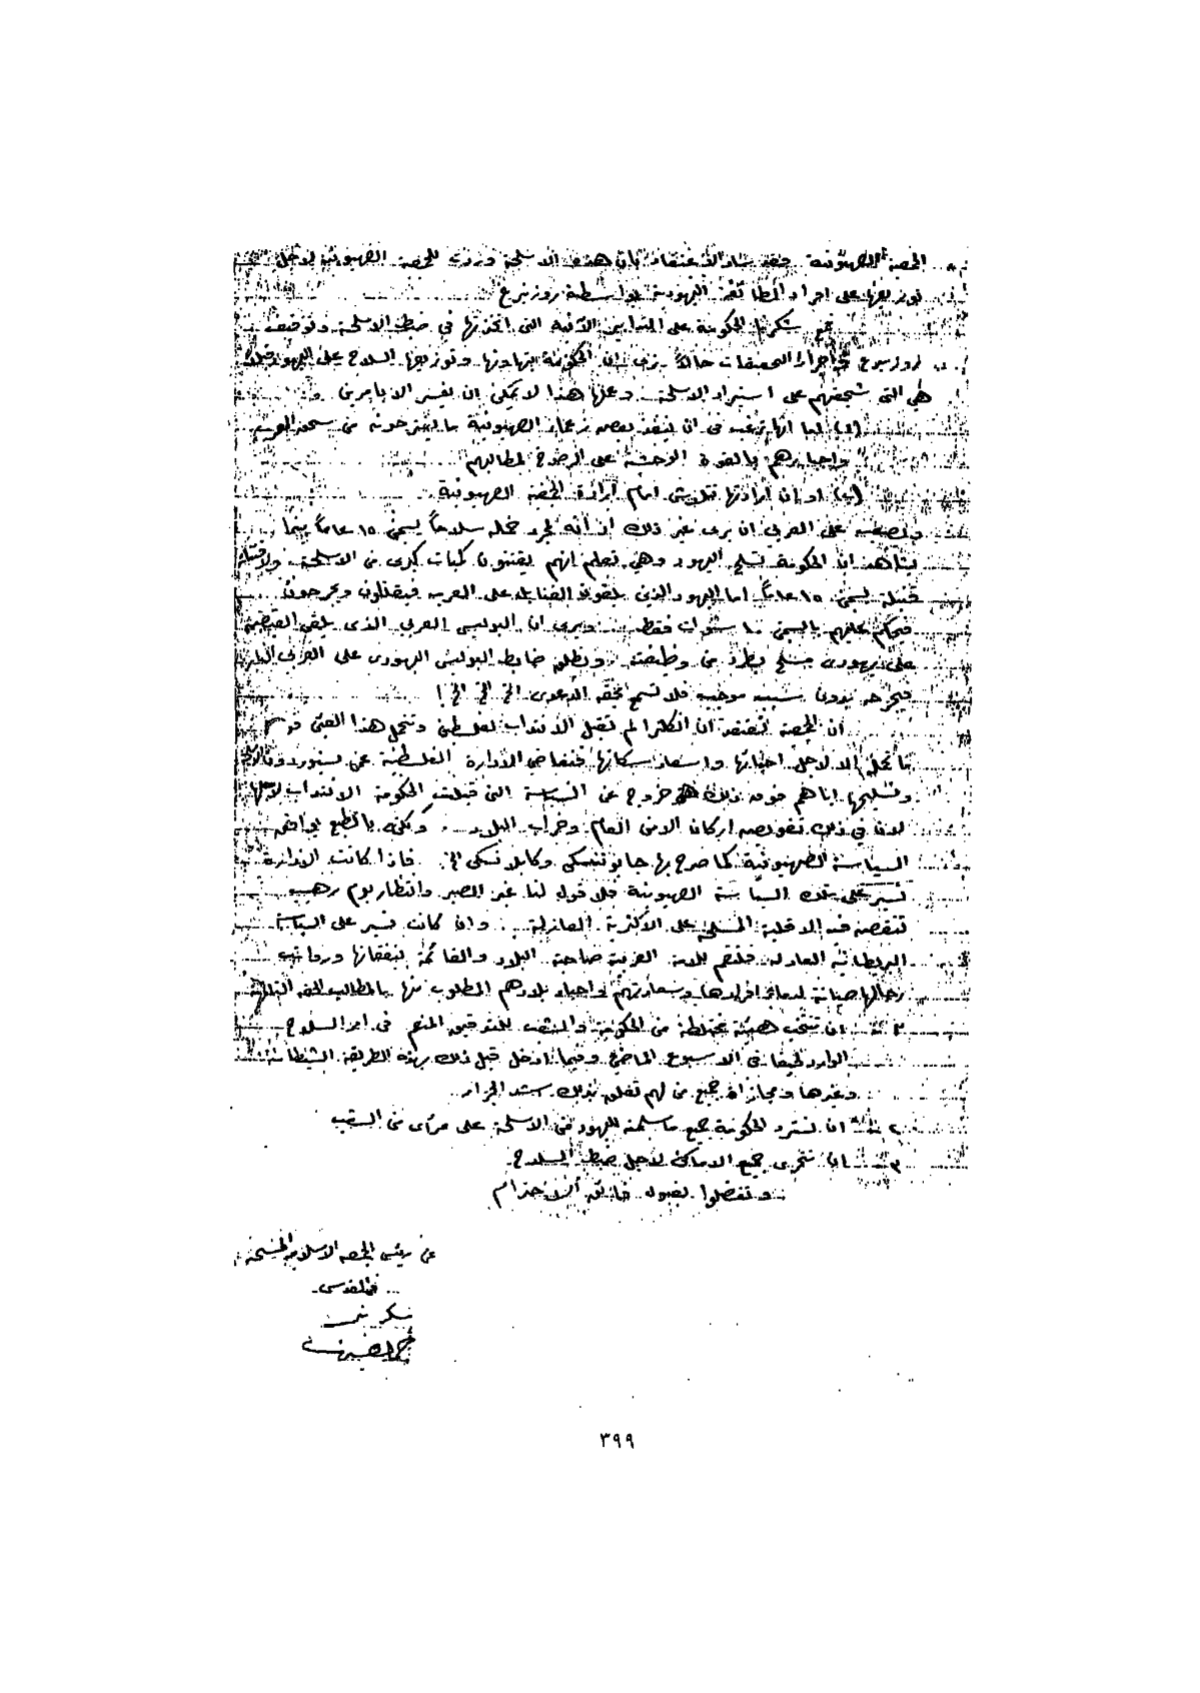 الجمعية الصهيونية فقد ساد الاعتقاد بان هذه الاسلحة وردت للجمعية الصهيونية لاجل
توزيعها على افراد الطائفة اليهودية بواسطة روزنبرغ
مع شكرنا الحكومة على التدابير الآنية التى اتخذتها في ضبط الاسلحة وتوقيف
روزنبرغ اجراء التحقيقات حالاً نرى ان الحكومة بتهاونها وتوزيعها السلاح على اليهود
هي التى شجعتهم على استيراد الاسلحة وعملها هذا لا يمكن ان يفسر الا بامرين
اما انها ترغب في ان ينفذ بعض زعماء الصهيونية ما يقترحونه من سحق العرب
واجبارهم بالقوة الوحشية على الرضوخ لمطالبهم
او ان ارادتها تتلاشى امام ارادة الجمعية الصهيونية
ويصعب على العربي ان يرى غير ذلك اذ أنه لمجرد حمله سلاحاً يسجن ١٥ عاماً بينما
يشاهد ان الحكومة تسلح اليهود وهي تعلم انهم يقتنون كميات كبرى من الاسلحة
قنبلة يسجن ١٥ عاماً اما اليهود الذين يلقون القنابل على العرب فيقتلون ويجرحون
فيحكم عليهم بالسجن ١٠ سنوات فقط ويرى ان البوليس العربي الذى يلقى القبض
على يهودى مسلح يطرد من وظيفته ويطلق ضابط البوليس اليهودى على العربى النار
فيجرحه بدون سبب موجب فلا تسمع بحقه الدعوى الخ الخ الخ !
ان الجمعية تعتقد ان انكلترا لم تقبل الانتداب لفلسطين وتتحمل هذا العبئ
الا لاجل احيائها واسعاد سكانها فتغاضي الادارة الفلسطينية عمن يستوردون
وتسليحها اياهم فوق ذلك هو خروج عن السياسة التى قبلت الحكومة الانتداب لاجلها
لان في ذلك تقويض اركان الامن العام وخراب البلاد ولكنه بالطبع يوافق
السياسة الصهيونية كما صرح بها جابوتنسكي وكابلانسكى الخ فاذا كانت الادارة
تسير على تلك السياسة الصهيونية فلا قول لنا غير الصبر وانتظار يوم رهيب
تنقض فيه الاقلية المسلحة على الاكثرية العازلة وان كانت تسير على السياسة
البريطانية العادلة فلتقم بلامة العربية صاحبة البلاد والقائمة بنفقاتها ورواتب
رجالها صيانة لدماء افرادها وسعادتهم واحياء بلادهم المطلوب منها بالمطالب
ان تنتخب هيئة مختلطة من الحكومة والشعب للتدقيق المنعم فى امر السلاح
الوارد لحيفا في الاسبوع الماضى وفيما ادخل قبل ذلك بهذه الطريقة الشيطانية
وغيرها ومجازاة جميع من لهم تعلق بذلك اشد الجزاء
ان تسترد الحكومة جميع ما سلمته لليهود من الاسلحة على مرأى من الشعب
٣ ان تتحرى جميع الاماكن لاجل ضبط السلاح
وتفضلوا بقبول فائق الاحترام
عن رئيس الجمعية الاسلامية المسيحية
في القدس
٣٩٩